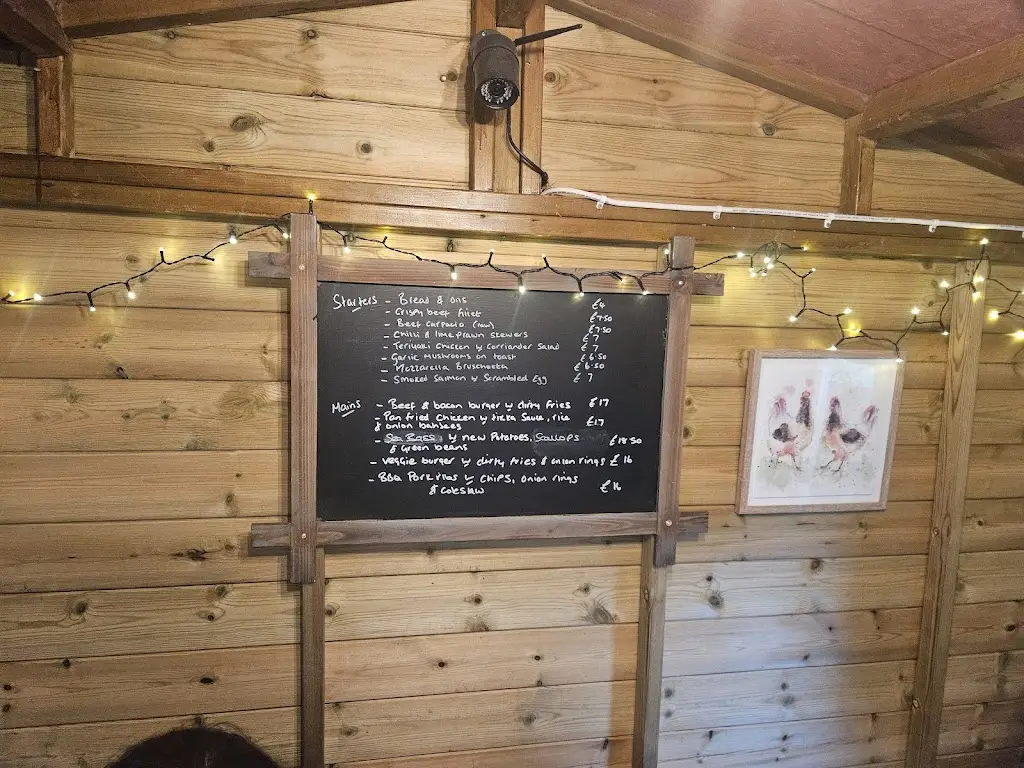 Starters - Bread & oils £4
- Crispy beef fillet £7.50
- Beef Carpacio (raw) £7.50
- Chilli & lime prawn skewers £7
- Teriyaki Chicken w Corriander Salad £7
- Garlic Mushrooms on toast £6.50
- Mozzarella Bruschetta £6.50
- Smoked Salmon w Scrambled Egg £7
Mains - Beef & bacon burger w dirty fries £17
- Pan fried Chicken w tikka Sauce, rice
& onion bahjees £17
- Sea Bass w new Potatoes, Scallops £18.50
& Green beans
- Veggie burger w dirty fries & onion rings £16
- BBQ Pork ribs w Chips, onion rings
& Coleslaw £16